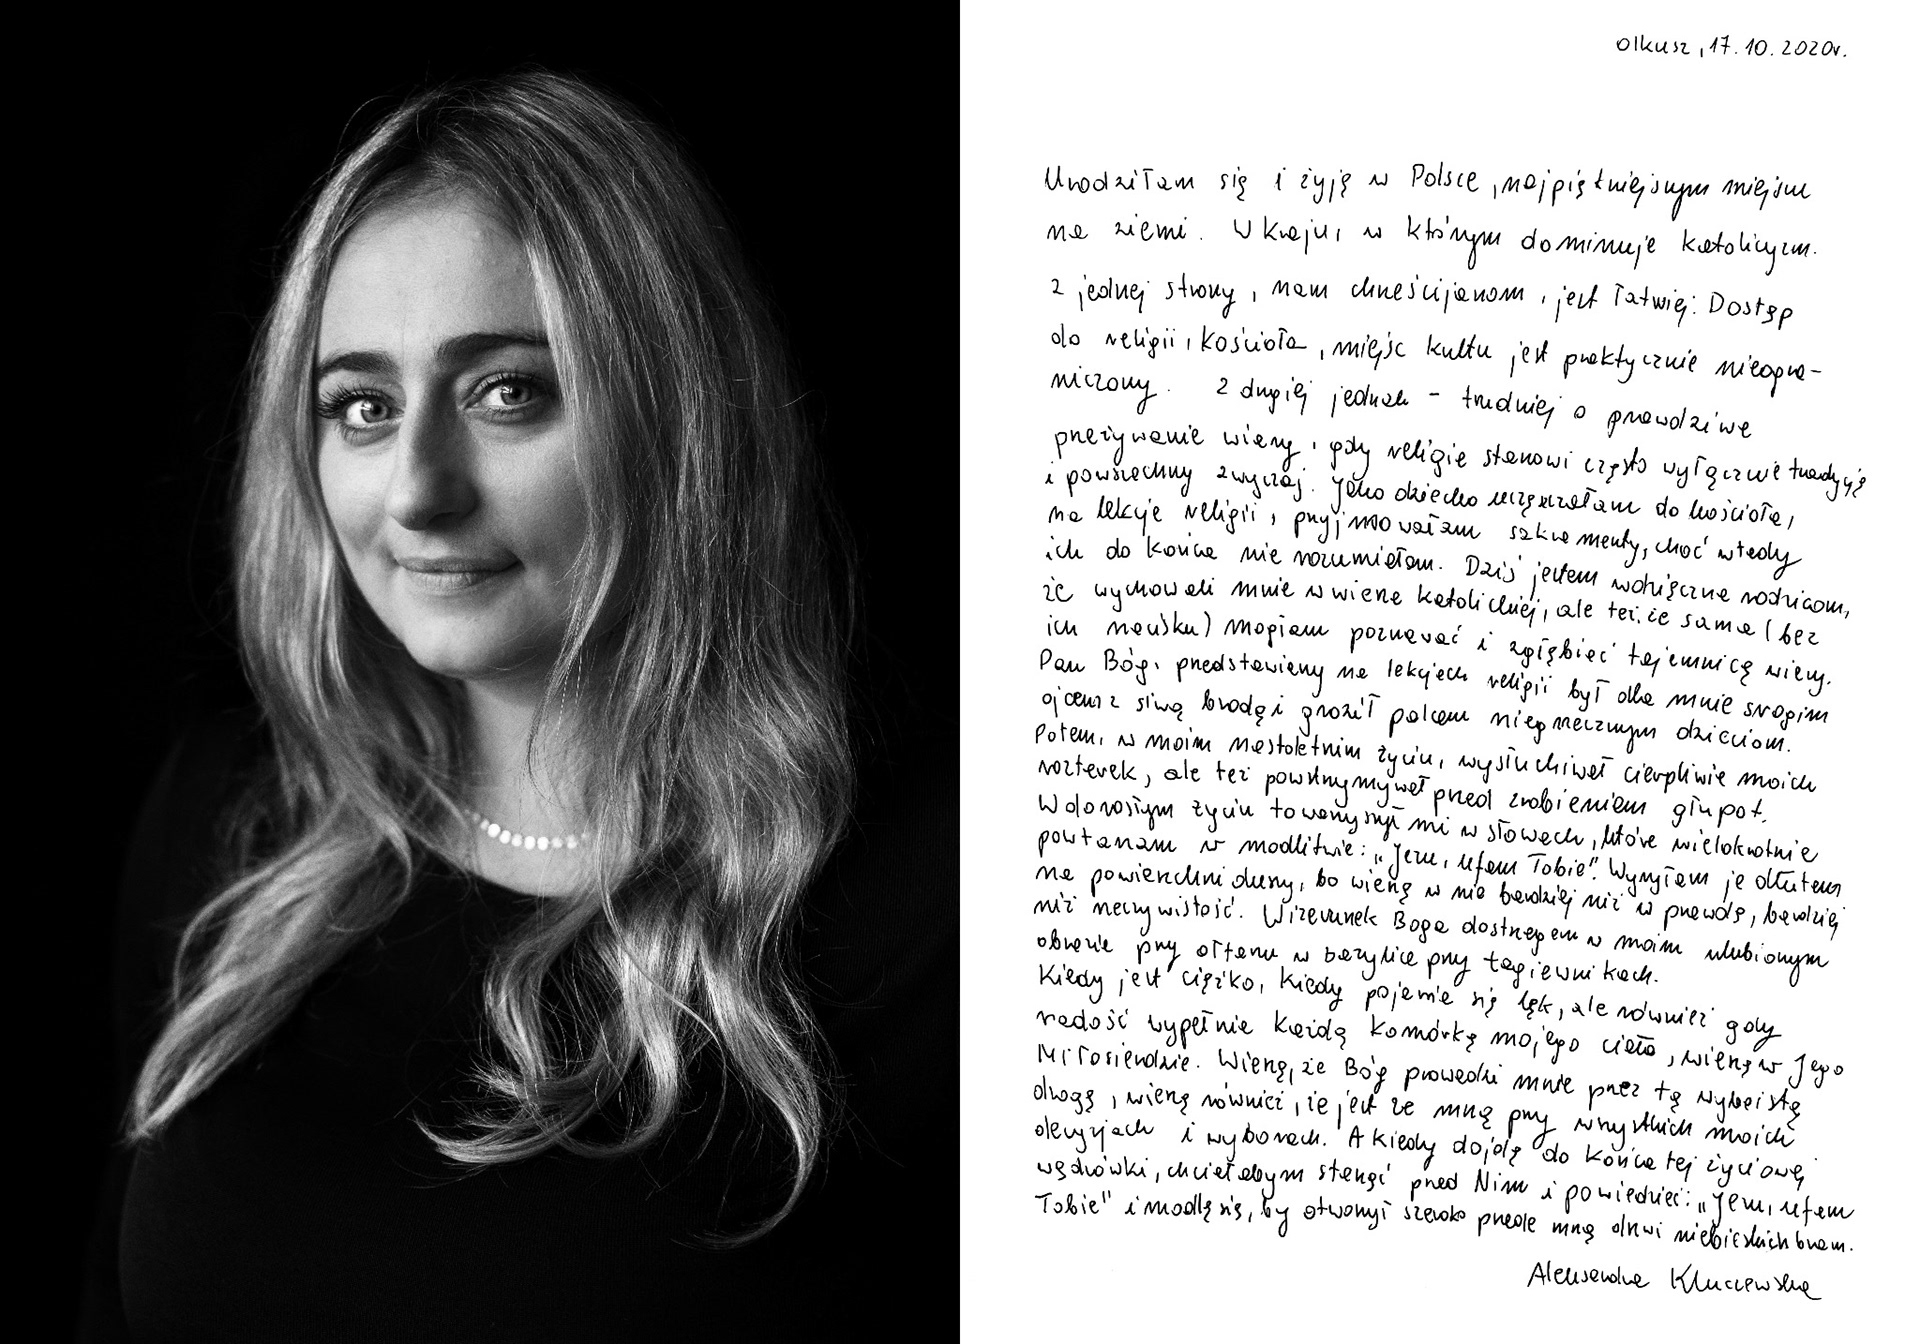 Olkusz, 17.10.2020r.
Urodziłam się i żyję w Polsce, najpiękniejszym miejscu
na ziemi. W kraju, w którym dominuje katolicyzm.
Z jednej strony, nam chrześcijanom, jest łatwiej. Dostęp
do religii, kościoła, miejsc kultu jest praktycznie nieogra-
niczony. Z drugiej jednak - trudniej o prawdziwe
przeżywanie wiary, gdy religia stanowi często wyłącznie tradycję
i powszechny zwyczaj. Jako dziecko uczęszczałam do kościoła,
na lekcje religii, przyjmowałam sakramenty, choć wtedy
ich do końca nie rozumiałam. Dziś jestem wdzięczna rodzicom,
że wychowali mnie w wierze katolickiej, ale też, że sama (bez
ich nacisku) mogłam poznawać i zgłębiać tajemnicę wiary.
Pan Bóg, przedstawiany na lekcjach religii był dla mnie srogim
ojcem z siwą brodą i groził palcem niegrzecznym dzieciom.
Potem, w moim nastoletnim życiu, wysłuchiwał cierpliwie moich
rozterek, ale też powstrzymywał przed zrobieniem głupot.
W dorosłym życiu towarzyszył mi w słowach, które wielokrotnie
powtarzam w modlitwie: „Jezu, ufam Tobie". Wyryłam je dłutem
na powierzchni duszy, bo wierzę w nie bardziej niż w prawdę, bardziej
niż rzeczywistość. Wizerunek Boga dostrzegam w moim ulubionym
obrazie przy ołtarzu w bazylice przy Łagiewnikach.
Kiedy jest ciężko, kiedy pojawia się lęk, ale również gdy
radość wypełnia każdą komórkę mojego ciała, wierzę w Jego
Miłosierdzie. Wierzę, że Bóg prowadzi mnie przez tą wyboistą
drogę, wierzę również, że jest ze mną przy wszystkich moich
decyzjach i wyborach. A kiedy dojdę do końca tej życiowej
wędrówki, chciałabym stanąć przed Nim i powiedzieć: „Jezu, ufam
Tobie" i modlę się, by otworzył szeroko przede mną drzwi niebieskich bram.
Aleksandra Kluczewska